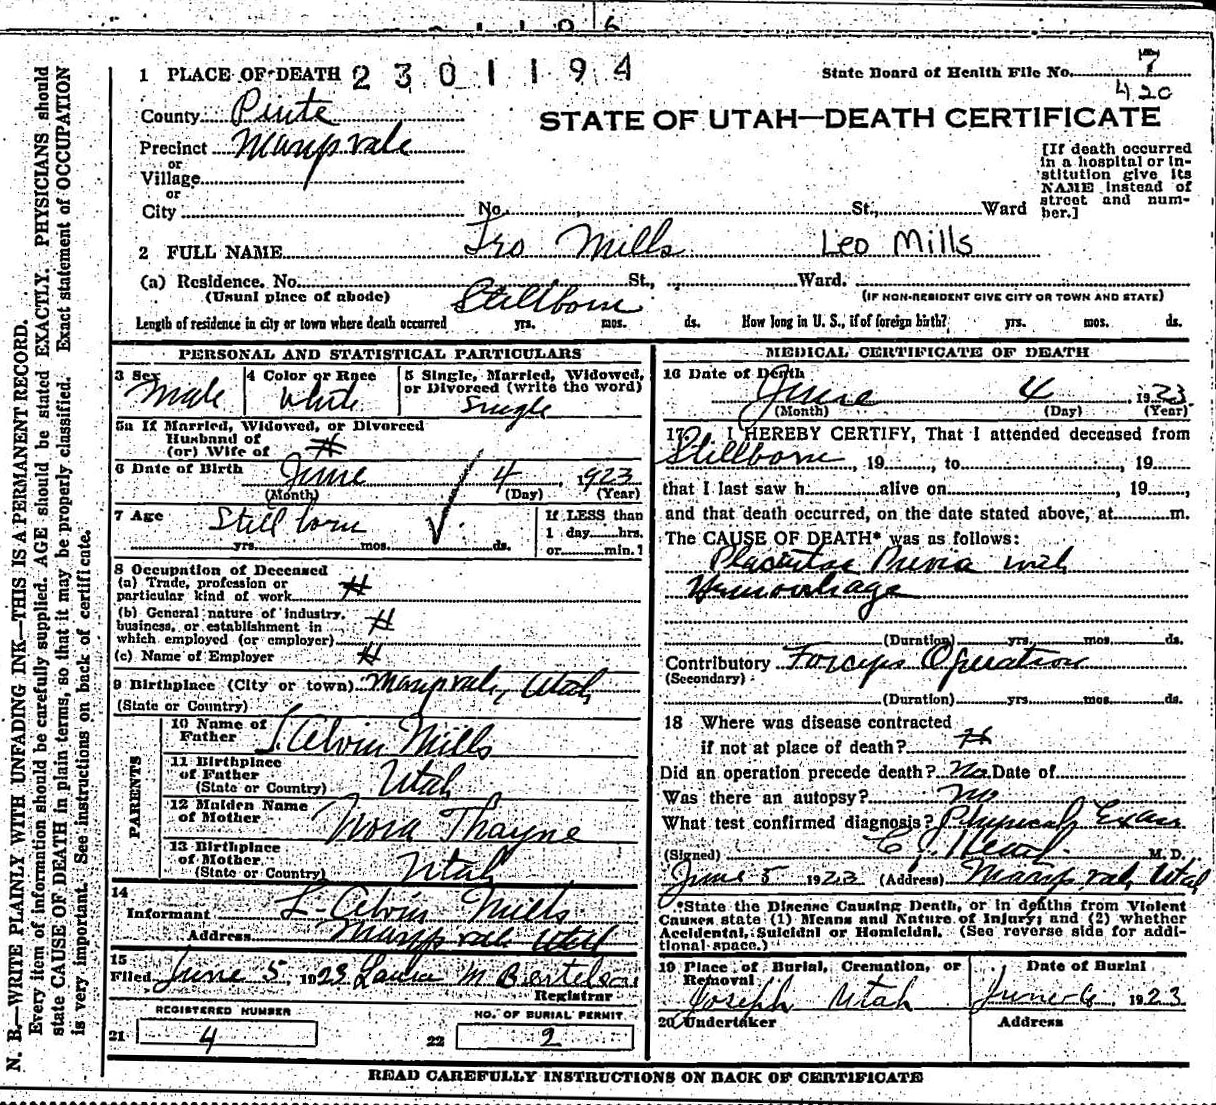 1 PLACE OF DEATH 2301194 State Board of Health File No. 7
420
County Piute
STATE OF UTAH—DEATH CERTIFICATE
Precinct Marysvale
or
Village
or
City No. St., Ward
[If death occurred in a hospital or in-
stitution give its
NAME instead of
street and num-
ber.]
2 FULL NAME Leo Mills Leo Mills
(a) Residence. No. St., Ward.
(Usual place of abode) Stillborn (IF NON-RESIDENT GIVE CITY OR TOWN AND STATE)
Length of residence in city or town where death occurred yrs. mos. ds. How long in U. S., if of foreign birth? yrs. mos. ds.
PERSONAL AND STATISTICAL PARTICULARS
3 Sex Male
4 Color or Race White
5 Single, Married, Widowed,
or Divorced (write the word)
Single
5a If Married, Widowed, or Divorced
Husband of
(or) Wife of
6 Date of Birth June 4, 1923
(Month) (Day) (Year)
7 Age Still born
yrs. mos. ds.
If LESS than
1 day hrs.
or min.?
8 Occupation of Deceased
(a) Trade, profession or
particular kind of work
(b) General nature of industry,
business, or establishment in
which employed (or employer)
(c) Name of Employer
9 Birthplace (City or town) Marysvale, Utah
(State or Country)
PARENTS
10 Name of
Father L. Alvin Mills
11 Birthplace
of Father
(State or Country) Utah
12 Maiden Name
of Mother Nora Thayne
13 Birthplace
of Mother
(State or Country) Utah
14
Informant L. Alvin Mills
Address Marysvale Utah
15
Filed June 5, 1923 Laura M Bertelson
Registrar
REGISTERED NUMBER
21 4
NO. OF BURIAL PERMIT
22 2
MEDICAL CERTIFICATE OF DEATH
16 Date of Death
June 4, 1923
(Month) (Day) (Year)
17 I HEREBY CERTIFY, That I attended deceased from
Stillborn, 19, to, 19
that I last saw h alive on, 19,
and that death occurred, on the date stated above, at m.
The CAUSE OF DEATH* was as follows:
Placenta Previa with
Hemorrhage
(Duration) yrs. mos. ds.
Contributory Forceps Operation
(Secondary)
(Duration) yrs. mos. ds.
18 Where was disease contracted
if not at place of death?
Did an operation precede death? No Date of
Was there an autopsy? no
What test confirmed diagnosis? Physical Exam
(Signed) M. D.
June 5 1923 (Address) Marysvale, Utah
*State the Disease Causing Death, or in deaths from Violent
Causes state (1) Means and Nature of Injury; and (2) whether
Accidental, Suicidal or Homicidal. (See reverse side for addi-
tional space.)
19 Place of Burial, Cremation, or
Removal
Joseph Utah
Date of Burial
June 6, 1923
20 Undertaker
Address
READ CAREFULLY INSTRUCTIONS ON BACK OF CERTIFICATE
N. B.—WRITE PLAINLY WITH UNFADING INK—THIS IS A PERMANENT RECORD.
Every item of information should be carefully supplied. AGE should be stated EXACTLY. PHYSICIANS should
state CAUSE OF DEATH in plain terms, so that it may be properly classified. Exact statement of OCCUPATION
is very important. See instructions on back of certificate.